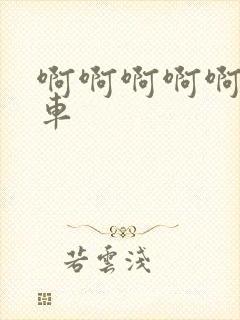 啊啊啊啊啊
車
若雲淺